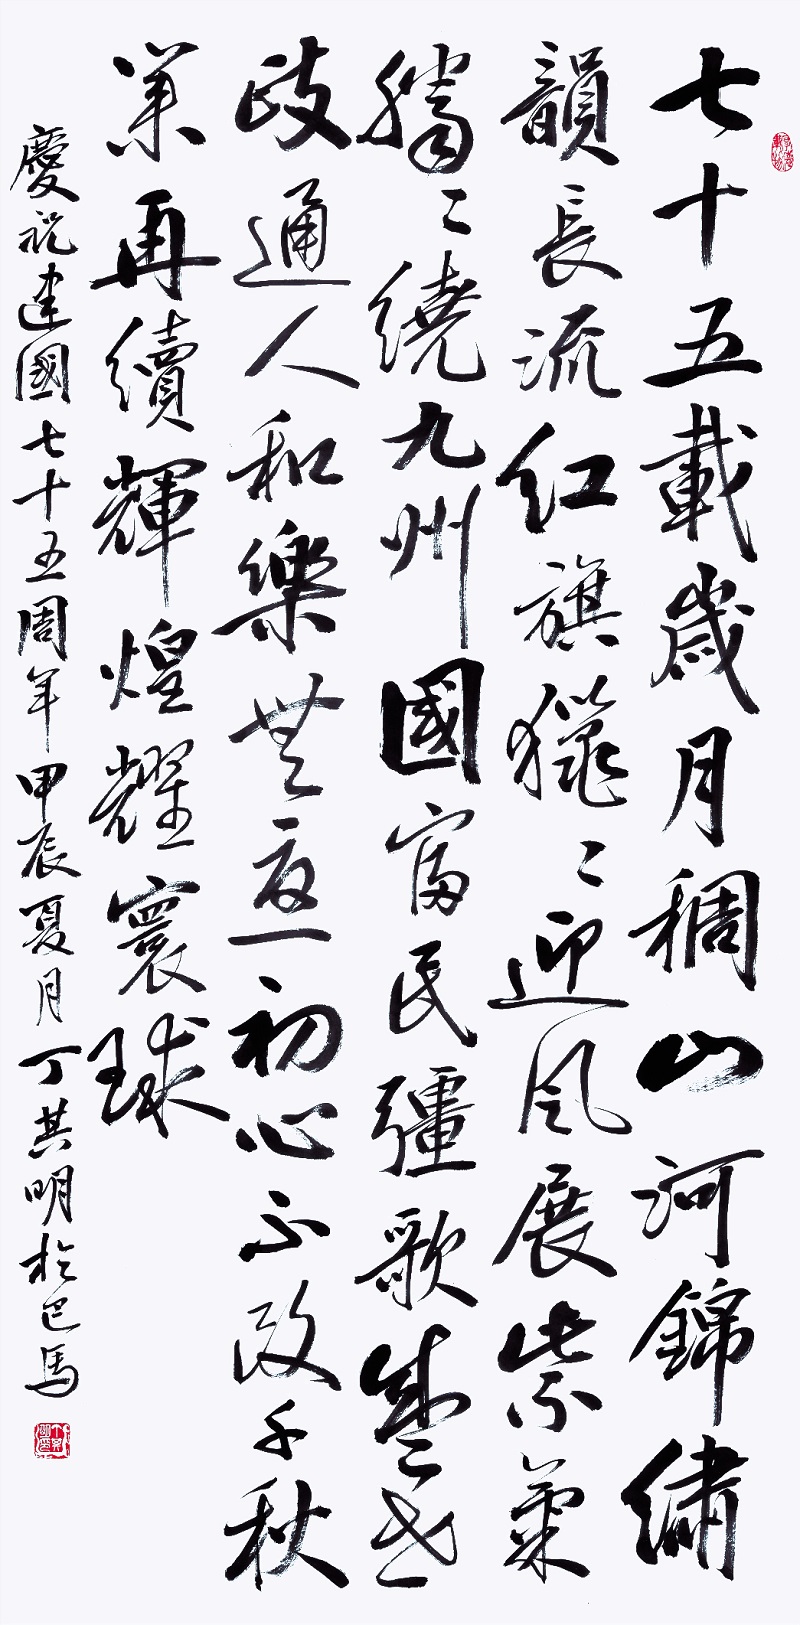 七十五載歲月稠山河錦繡
韻長流红旗獵〻迎风展紫氣
騰〻繞九州國富民彊歌盛世
政通人和樂無憂初心不改千秋
業再續輝煌耀寰球
慶祝建國七十五周年甲辰夏月丁其明於巴馬